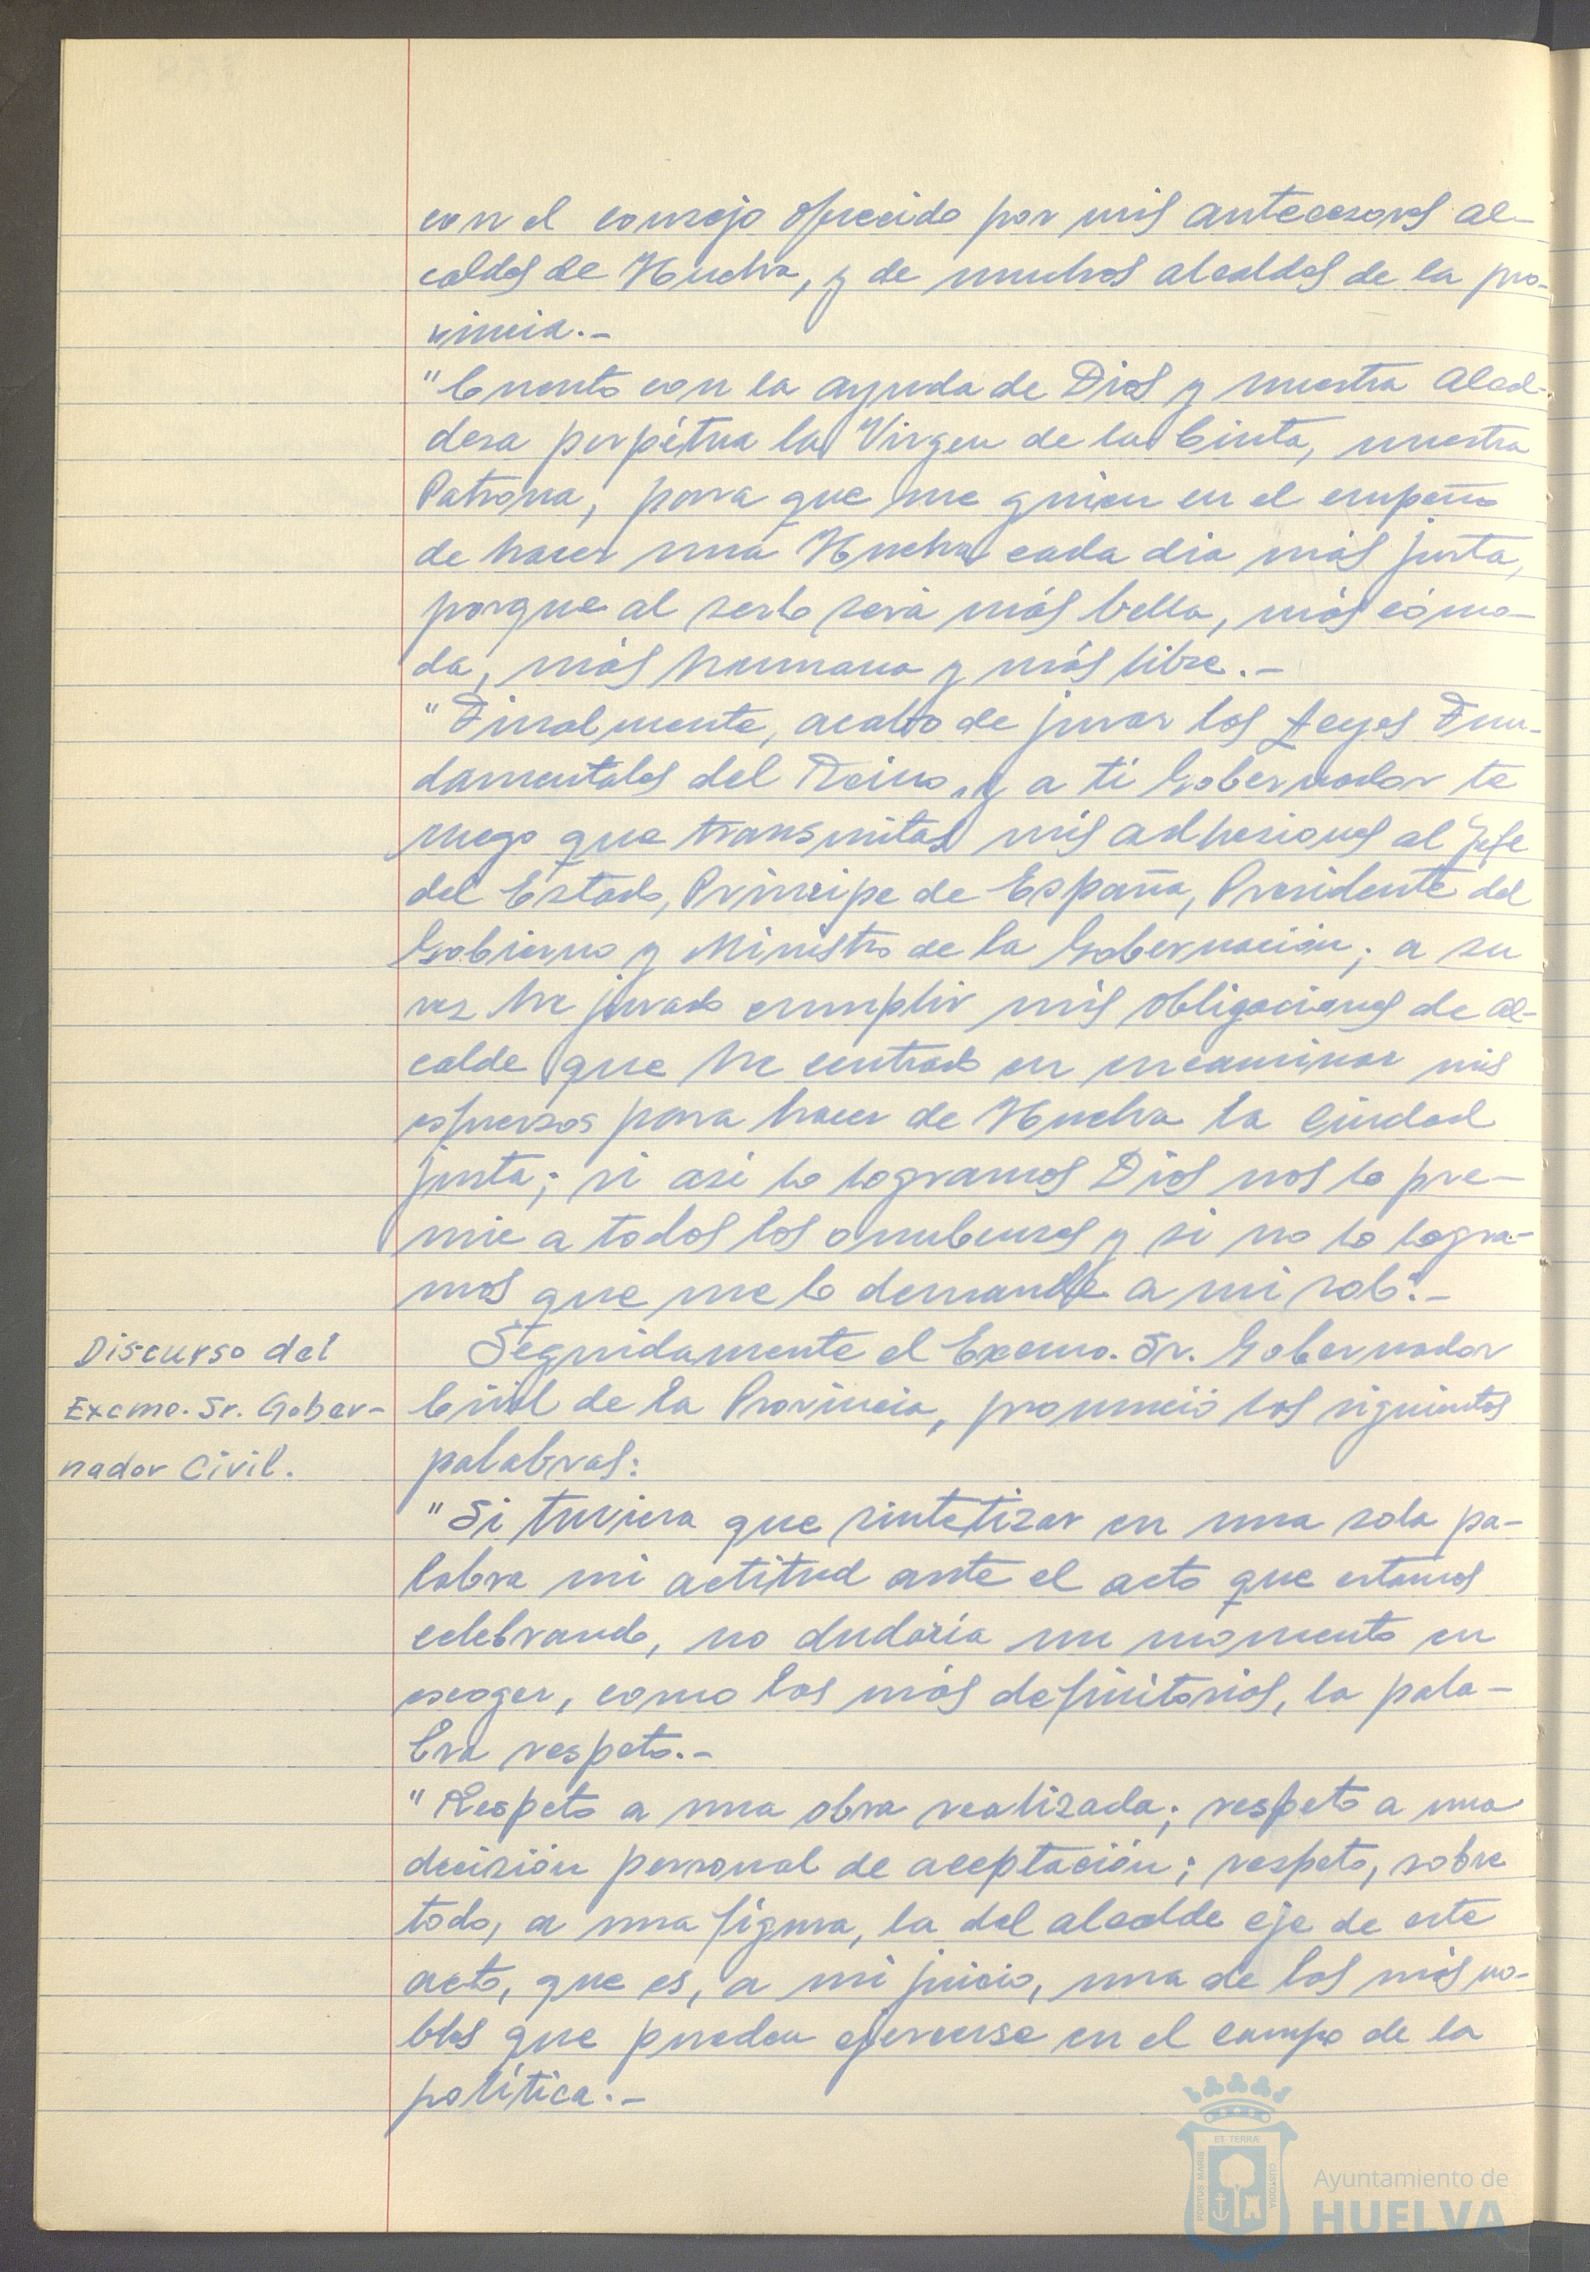 con el consejo ofrecido por mis antecesores al-
caldes de Huelva, y de muchos alcaldes de la pro-
vincia.-
"Cuento con la ayuda de Dios y nuestra Alcal-
desa perpétua la Virgen de la Cinta, nuestra
Patrona, para que me guien en el empeño
de hacer una Huelva cada dia más justa,
porque al serlo será más bella, más cómo-
da, más humana y más libre.-
"Finalmente, acabo de jurar las Leyes Fun-
damentales del Reino, y a ti Gobernador te
ruego que transmitas mis adhesiones al Jefe
del Estado, Principe de España, Presidente del
Gobierno y Ministro de la Gobernación; a su
vez he jurado cumplir mis obligaciones de al-
calde que he centrado en encaminar mis
esfuerzos para hacer de Huelva la Ciudad
justa; si asi lo logramos Dios nos lo pre-
mie a todos los onubenses y si no lo logra-
mos que me lo demande a mi solo".-
Discurso del
Excmo. Sr. Gober-
nador Civil.
Seguidamente el Excmo. Sr. Gobernador
Civil de la Provincia, pronunció las siguientes
palabras:
"Si tuviera que sintetizar en una sola pa-
labra mi actitud ante el acto que estamos
celebrando, no dudaría un momento en
escoger, como las más definitorias, la pala-
bra respeto.-
"Respeto a una obra realizada; respeto a una
decisión personal de aceptación; respeto, sobre
todo, a una figura, la del alcalde eje de este
acto, que es, a mi juicio, una de las más no-
bles que pueden ejercerse en el campo de la
política.-
PORTUS MARIS
ET TERRÆ
CUSTODIA
Ayuntamiento de
HUELVA